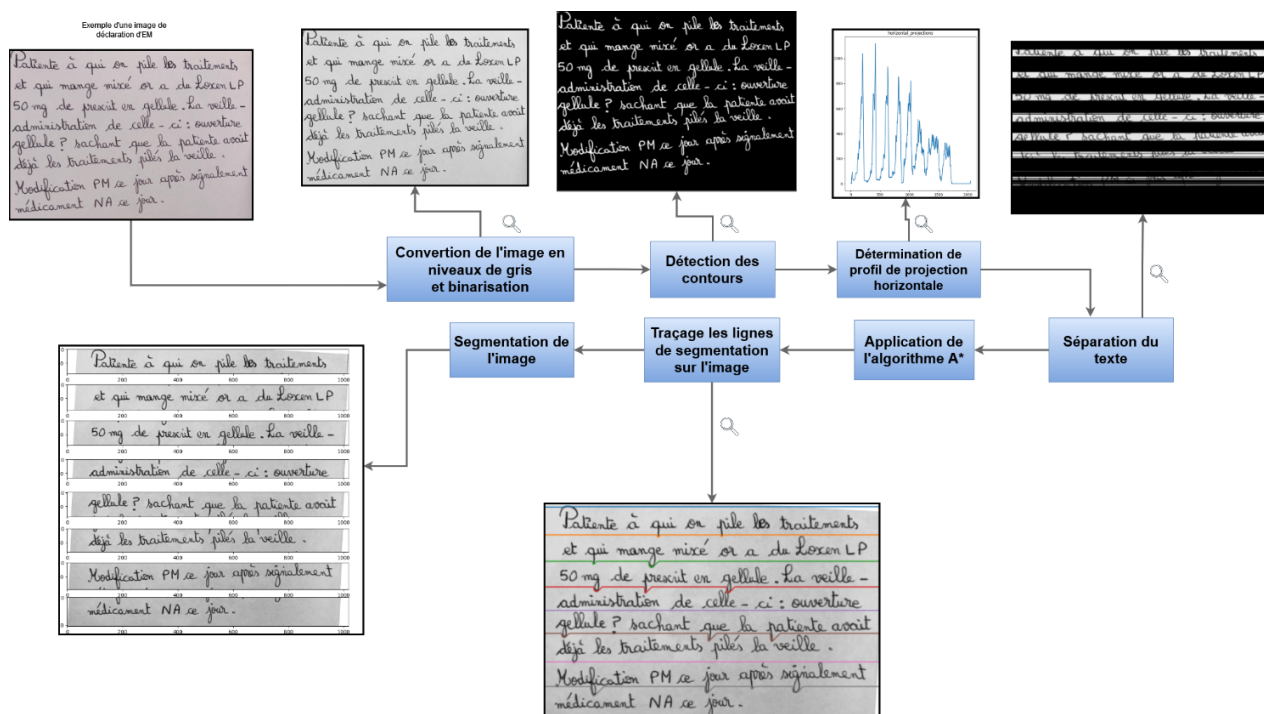 Exemple d'une image de
déclaration d'EM
Patiente à qui on pile les traitements
et qui mange mixé or a du Loxen LP
50 mg de prescrit en gellule. La veille -
administration de celle - ci : ouverture
gellule ? sachant que la patiente avait
déjà les traitements pilés la veille.
Modification PM ce jour après signalement
médicament NA ce jour.
Patiente à qui on pile les traitements
et qui mange mixé or a du Loxen LP
50 mg de prescrit en gellule. La veille -
administration de celle - ci : ouverture
gellule ? sachant que la patiente avait
déjà les traitements pilés la veille.
Modification PM ce jour après signalement
médicament NA ce jour.
Patiente à qui on pile les traitements
et qui mange mixé or a du Loxen LP
50 mg de prescrit en gellule. La veille -
administration de celle - ci : ouverture
gellule ? sachant que la patiente avait
déjà les traitements pilés la veille.
Modification PM ce jour après signalement
médicament NA ce jour.
horizontal_projections
Patiente à qui on pile les traitements
et qui mange mixé or a du Loxen LP
50 mg de prescrit en gellule. La veille -
administration de celle - ci : ouverture
gellule ? sachant que la patiente avait
Convertion de l'image en
niveaux de gris
et binarisation
Détection des
contours
Détermination de
profil de projection
horizontale
Séparation du
texte
Application de
l'algorithme A*
Traçage les lignes
de segmentation
sur l'image
Segmentation de
l'image
Patiente à qui on pile les traitements
0 200 400 600 800 1000
et qui mange mixé or a du Loxen LP
0 200 400 600 800 1000
50 mg de prescrit en gellule. La veille -
0 200 400 600 800 1000
administration de celle - ci : ouverture
0 200 400 600 800 1000
gellule ? sachant que la patiente avait
0 200 400 600 800 1000
déjà les traitements pilés la veille.
0 200 400 600 800 1000
Modification PM ce jour après signalement
0 200 400 600 800 1000
médicament NA ce jour.
0 200 400 600 800 1000
Patiente à qui on pile les traitements
et qui mange mixé or a du Loxen LP
50 mg de prescrit en gellule. La veille -
administration de celle - ci : ouverture
gellule ? sachant que la patiente avait
déjà les traitements pilés la veille.
Modification PM ce jour après signalement
médicament NA ce jour.